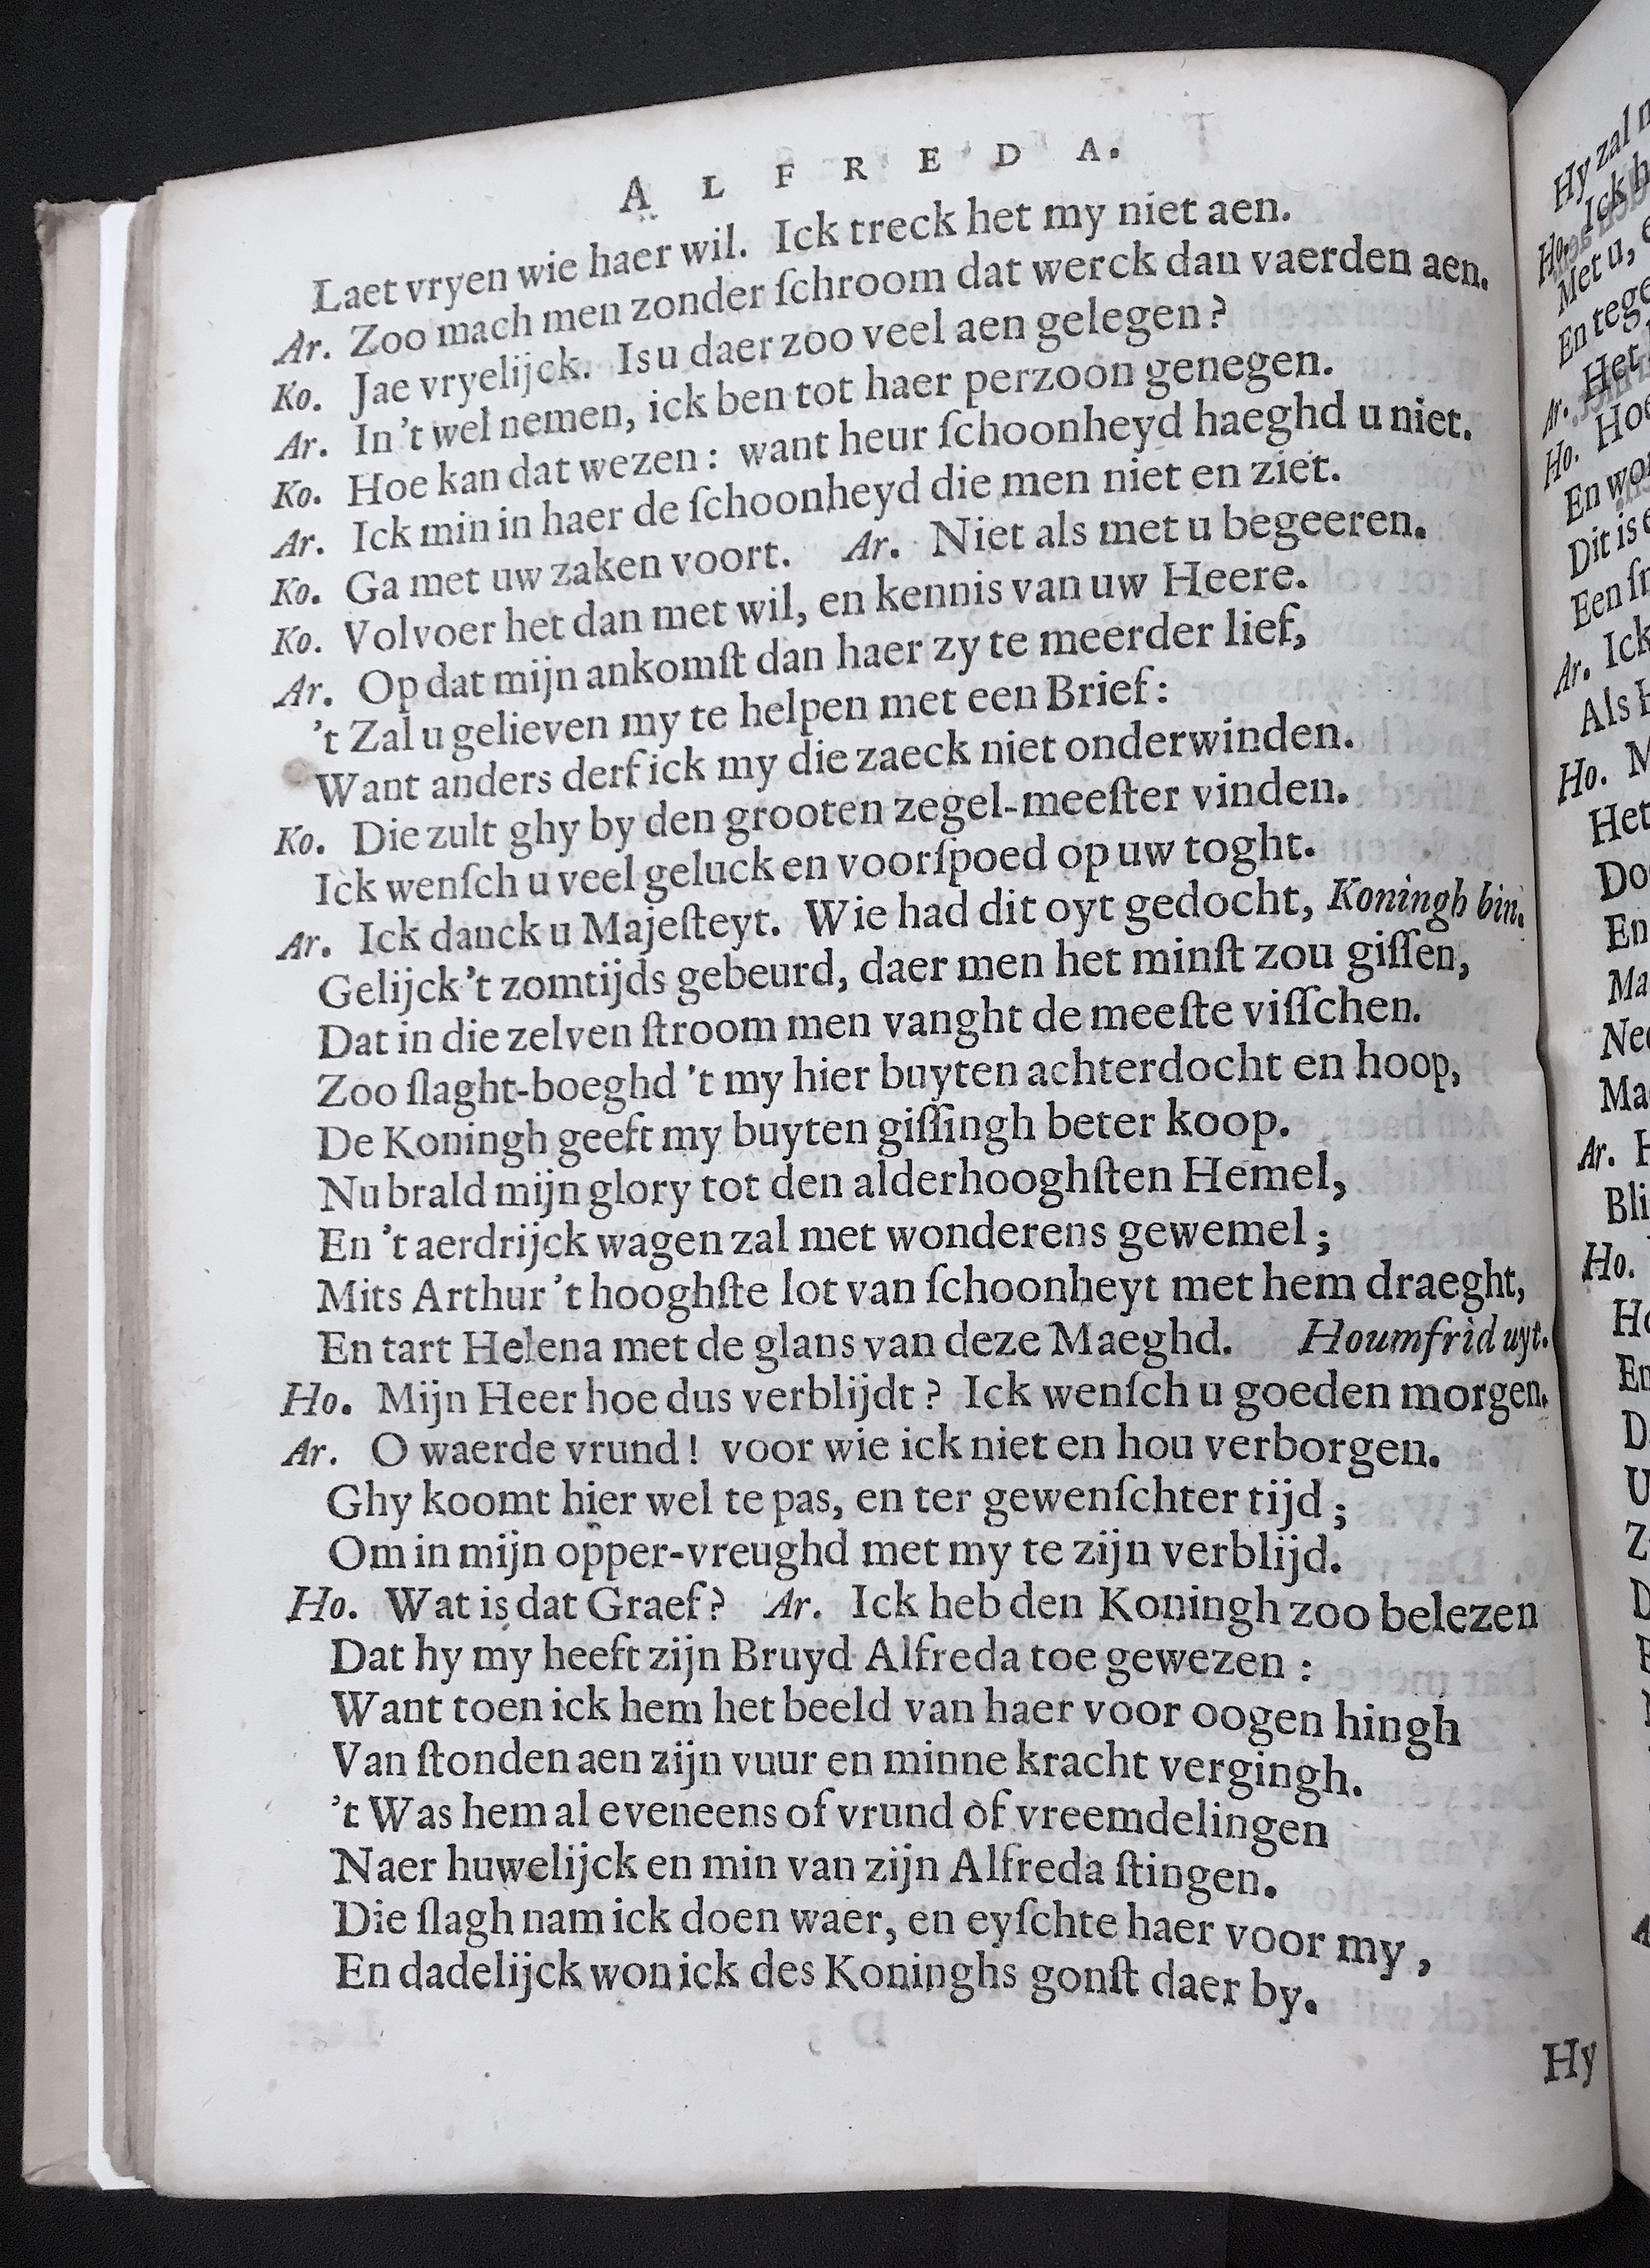 ALFREDA.
Laet vryen wie haer wil. Ick treck het my niet aen.
Ar. Zoo mach men zonder ſchroom dat werck dan vaerden aen.
Ko. Jae vryelijck. Is u daer zoo veel aen gelegen?
Ar. In't wel nemen, ick ben tot haer perzoon genegen.
Ko. Hoe kan dat wezen: want heur ſchoonheyd haeghd u niet.
Ar. Ick min in haer de ſchoonheyd die men niet en ziet.
Ko. Ga met uw zaken voort. Ar. Niet als met u begeeren.
Ko. Volvoer het dan met wil, en kennis van uw Heere.
Ar. Op dat mijn ankomſt dan haer zy te meerder lief,
't Zal u gelieven my te helpen met een Brief:
Want anders derf ick my die zaeck niet onderwinden.
Ko. Die zult ghy by den grooten zegel-meeſter vinden.
Ick wenſch u veel geluck en voorſpoed op uw toght.
Ar. Ick danck u Majeſteyt. Wie had dit oyt gedocht, Koningh bin.
Gelijck't zomtijds gebeurd, daer men het minſt zou giſſen,
Dat in die zelven ſtroom men vanght de meeſte viſſchen.
Zoo ſlaght-boeghd 't my hier buyten achterdocht en hoop,
De Koningh geeft my buyten giſſingh beter koop.
Nu brald mijn glory tot den alderhooghſten Hemel,
En 't aerdrijck wagen zal met wonderens gewemel;
Mits Arthur 't hooghſte lot van ſchoonheyt met hem draeght,
En tart Helena met de glans van deze Maeghd. Houmfrid uyt.
Ho. Mijn Heer hoe dus verblijdt? Ick wenſch u goeden morgen.
Ar. O waerde vrund! voor wie ick niet en hou verborgen.
Ghy koomt hier wel te pas, en ter gewenſchter tijd;
Om in mijn opper-vreughd met my te zijn verblijd.
Ho. Wat is dat Graef? Ar. Ick heb den Koningh zoo belezen
Dat hy my heeft zijn Bruyd Alfreda toe gewezen:
Want toen ick hem het beeld van haer voor oogen hingh
Van ſtonden aen zijn vuur en minne kracht vergingh.
't Was hem al eveneens of vrund of vreemdelingen
Naer huwelijck en min van zijn Alfreda ſtingen.
Die ſlagh nam ick doen waer, en eyſchte haer voor my,
En dadelijck won ick des Koninghs gonſt daer by.
Hy
Hy zal
Ho. Ick
Met u,
En tege
Ar. Het
Ho. Hoe
En wor
Dit is
Een
Ar. Ick
Als
Ho.
Het
Do
En
Ma
Ne
Ma
Ar.
Bli
Ho.